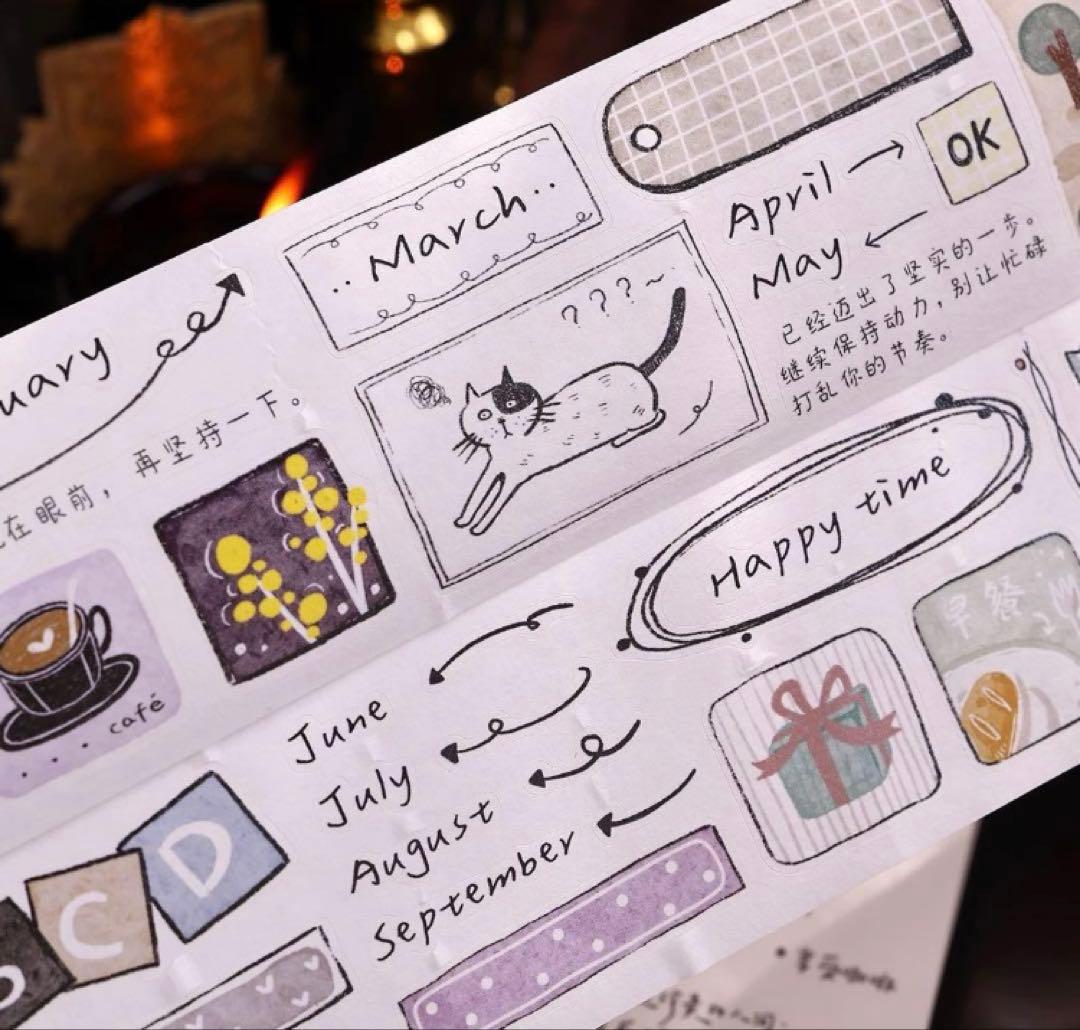 uary
在眼前，再坚持一下。
café
·· March ··
? ? ? ~
April
OK
May
已经迈出了坚实的一步。
继续保持动力，别让忙碌
打乱你的节奏。
Happy time
早餐
June
July
August
September
C
D